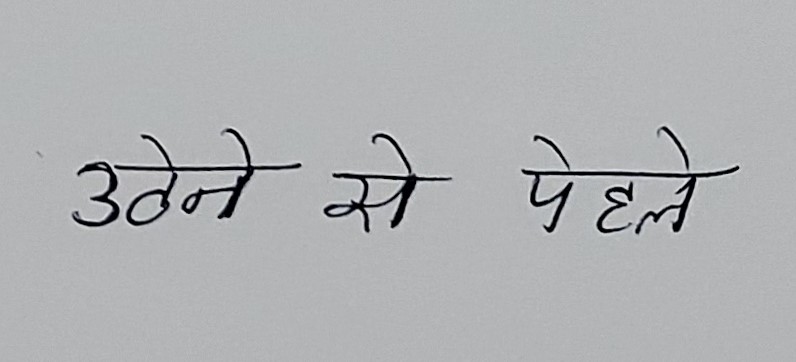 उठेने से पेहले